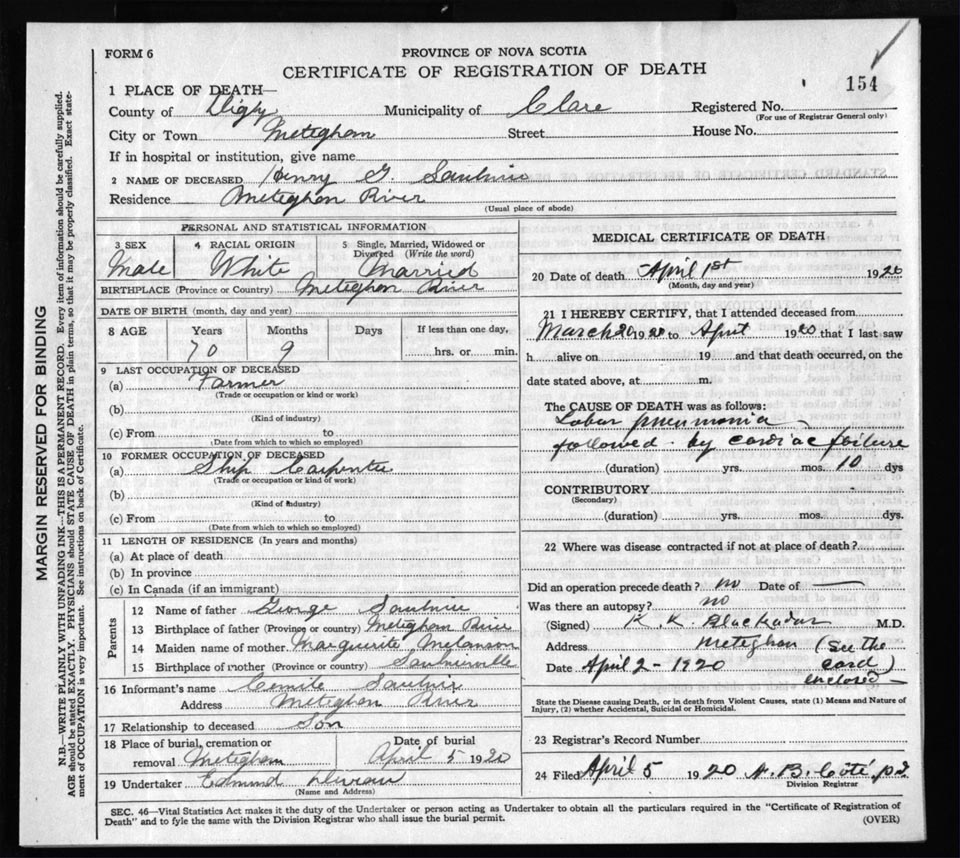 FORM 6
PROVINCE OF NOVA SCOTIA
CERTIFICATE OF REGISTRATION OF DEATH
154
1 PLACE OF DEATH—
County of Digby Municipality of Clare Registered No.
(For use of Registrar General only)
City or Town Meteghan Street House No.
If in hospital or institution, give name
2 NAME OF DECEASED Henry G. Saulnier
Residence Meteghan River
(Usual place of abode)
PERSONAL AND STATISTICAL INFORMATION
3 SEX 4 RACIAL ORIGIN 5 Single, Married, Widowed or Divorced (Write the word)
Male White Married
BIRTHPLACE (Province or Country) Meteghan River
DATE OF BIRTH (month, day and year)
8 AGE Years Months Days If less than one day,
70 9 hrs. or min.
9 LAST OCCUPATION OF DECEASED
(a) Farmer
(Trade or occupation or kind of work)
(b)
(Kind of industry)
(c) From to
(Date from which to which so employed)
10 FORMER OCCUPATION OF DECEASED
(a) Ship Carpenter
(Trade or occupation or kind of work)
(b)
(Kind of industry)
(c) From to
(Date from which to which so employed)
11 LENGTH OF RESIDENCE (In years and months)
(a) At place of death
(b) In province
(c) In Canada (if an immigrant)
Parents
12 Name of father George Saulnier
13 Birthplace of father (Province or country) Meteghan River
14 Maiden name of mother Marguerite Melanson
15 Birthplace of mother (Province or Country) Saulnierville
16 Informant's name Camile Saulnier
Address Meteghan River
17 Relationship to deceased Son
18 Place of burial, cremation or removal Meteghan Date of burial April 5 1920
19 Undertaker Edmund
(Name and Address)
MEDICAL CERTIFICATE OF DEATH
20 Date of death April 1st 1920
(Month, day and year)
21 I HEREBY CERTIFY, that I attended deceased from
March 20 1920 to April 1920 that I last saw
h alive on 19 and that death occurred, on the
date stated above, at m.
The CAUSE OF DEATH was as follows:
Lobar pneumonia
followed by cardiac failure
(duration) yrs. mos. 10 dys
CONTRIBUTORY
(Secondary)
(duration) yrs. mos. dys.
22 Where was disease contracted if not at place of death?
Did an operation precede death? no Date of —
Was there an autopsy? no
(Signed) K. K. Blackadar M.D.
Address Meteghan (See the
Date April 2 - 1920 card)
enclosed —
State the Disease causing Death, or in death from Violent Causes, state (1) Means and Nature of Injury, (2) whether Accidental, Suicidal or Homicidal.
23 Registrar's Record Number
24 Filed April 5 1920 Coté
Division Registrar
SEC. 46—Vital Statistics Act makes it the duty of the Undertaker or person acting as Undertaker to obtain all the particulars required in the "Certificate of Registration of
Death" and to fyle the same with the Division Registrar who shall issue the burial permit. (OVER)
MARGIN RESERVED FOR BINDING
N.B.—WRITE PLAINLY WITH UNFADING INK—THIS IS A PERMANENT RECORD. Every item of information should be carefully supplied.
AGE should be stated EXACTLY. PHYSICIANS should STATE CAUSE OF DEATH in plain terms, so that it may be properly classified. Exact state-
ment of OCCUPATION is very important. See instructions on back of Certificate.